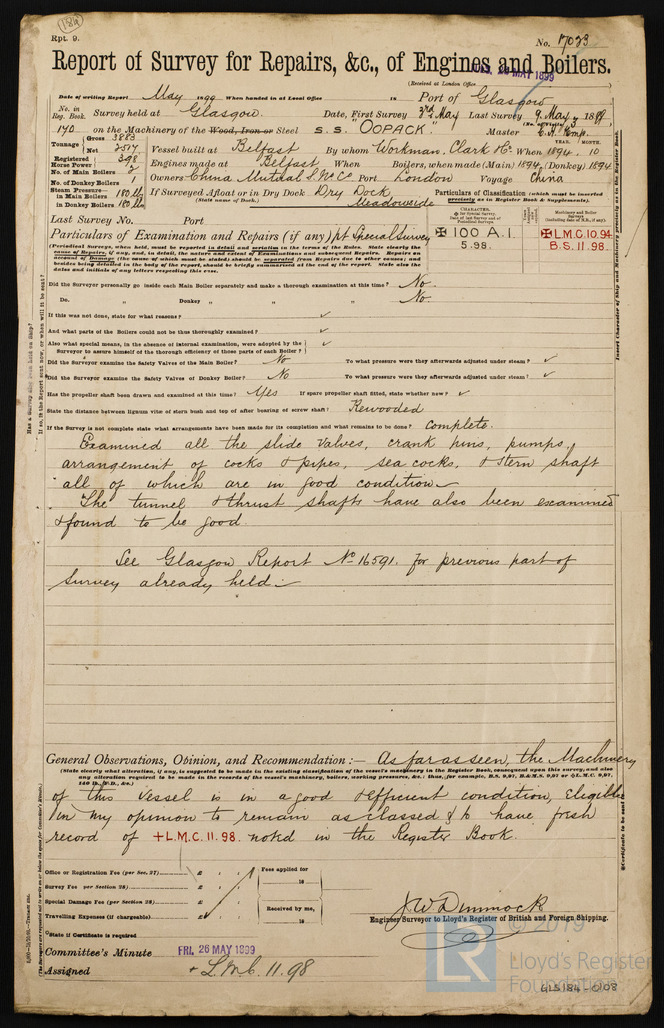 184
Rpt. 9.
No. 17023
Report of Survey for Repairs, &c., of Engines and Boilers.
(Received at London Office
26 MAY 1899
Date of writing Report May 1899 When handed in at Local Office 18 Port of Glasgow
No. in Reg. Book. Survey held at Glasgow. Date, First Survey 3rd May Last Survey 9 May 1899
(No. of Visits 3
170 on the Machinery of the Wood, Iron or Steel S.S. "OOPACK". Master
Tonnage Gross 3883
Net 2517
Vessel built at Belfast By whom Workman, Clark & Co. When 1894. 10
YEAR. MONTH.
Registered Horse Power 398
Engines made at Belfast When Boilers, when made (Main) 1894 (Donkey) 1894
No. of Main Boilers 2
Owners China Mutual S.N. Co. Port London Voyage China
No. of Donkey Boilers 1
Steam Pressure in Main Boilers 180 lb
in Donkey Boilers 180 lb
If Surveyed Afloat or in Dry Dock Dry Dock
(State name of Dock.) Meadowside
Particulars of Classification (which must be inserted precisely as in Register Book & Supplements).
Last Survey No. Port
CHARACTER.
Machinery and Boiler Surveys
Particulars of Examination and Repairs (if any) pt Special Survey
✠ 100 A.1.
5.98.
✠ L.M.C. 10.94
B.S. 11.98.
(Periodical Surveys, when held, must be reported in detail and seriatim in the terms of the Rules. State clearly the
cause of Repairs, if any, and, in detail, the nature and extent of Examinations and subsequent Repairs. Repairs on
account of Damage (the cause of which must be stated) should be separated from Repairs due to other causes; and
besides being detailed in the body of the report, should be briefly summarised at the end of the report. State also the
dates and initials of any letters respecting this case.
Did the Surveyor personally go inside each Main Boiler separately and make a thorough examination at this time? No.
Do. " Donkey " " " " No.
If this was not done, state for what reasons? ✓
And what parts of the Boilers could not be thus thoroughly examined? ✓
Also what special means, in the absence of internal examination, were adopted by the
Surveyor to assure himself of the thorough efficiency of those parts of each Boiler? ✓
Did the Surveyor examine the Safety Valves of the Main Boiler? No To what pressure were they afterwards adjusted under steam? ✓
Did the Surveyor examine the Safety Valves of Donkey Boiler? No To what pressure were they afterwards adjusted under steam? ✓
Has the propeller shaft been drawn and examined at this time? Yes If spare propeller shaft fitted, state whether now? ✓
State the distance between lignum vitæ of stern bush and top of after bearing of screw shaft? Rewooded
If the Survey is not complete state what arrangements have been made for its completion and what remains to be done? Complete.
Examined all the slide valves, crank pins, pumps,
arrangement of cocks & pipes, sea cocks, & stern shaft
all of which are in good condition
The tunnel & thrust shafts have also been examined
& found to be good.
See Glasgow Report No 16591. for previous part of
Survey already held.
General Observations, Opinion, and Recommendation:— As far as seen, the Machinery
(State clearly what alteration, if any, is suggested to be made in the existing classification of the vessel's machinery in the Register Book, consequent upon this survey, and also
any alteration required to be made in the records of the vessel's machinery, boilers, working pressures, &c.; thus, for example, B.S. 9,97, B.&M.S. 9,97 or ✠L.M.C. 9,97,
140 lb., F.D., &c.)
of this vessel is in a good & efficient condition, eligible
in my opinion to remain as classed & to have fresh
record of + L.M.C. 11.98. noted in the Register Book.
Office or Registration Fee (per Sec. 27) £
Survey Fee per Section 28) £
Special Damage Fee (per Section 28) £
Travelling Expenses (if chargeable) £
Fees applied for
18
Received by me,
18
State if Certificate is required
J W Dimmock
Engineer Surveyor to Lloyd's Register of British and Foreign Shipping.
Committee's Minute FRI. 26 MAY 1899
Assigned + L.M.C. 11.98
© 2019
LR
Lloyd's Register
Foundation
GLS184-0108